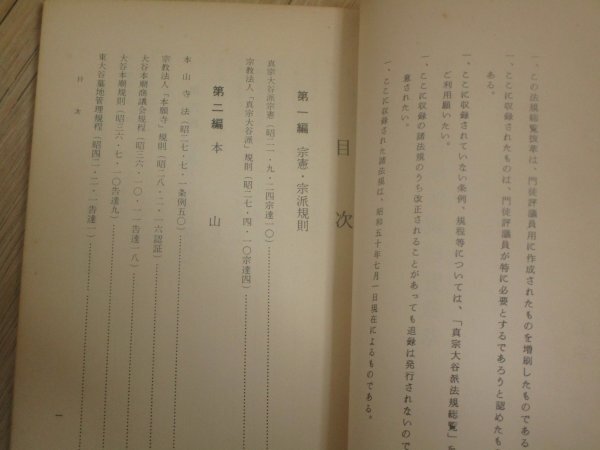 一、この法規総覧抜萃は、門徒評議員用に作成されたものを増刷したものである
一、ここに収録されたものは、門徒評議員が特に必要とするであろうと認めたも
ある。
一、ここに収録されていない条例、規程等については、「真宗大谷派法規総覧」を
ご利用願いたい。
一、ここに収録の諸法規のうち改正されることがあっても追録は発行されないので
意されたい。
一、ここに収録された諸法規は、昭和五十年七月一日現在によるものである。
目次
第一編 宗憲・宗派規則
真宗大谷派宗憲（昭二一・九・二四宗達一〇）
宗教法人「真宗大谷派」規則（昭二七・四・一〇宗達四）
第二編 本山
本山寺法（昭二七・七・一条例五〇）
宗教法人「本願寺」規則（昭二八・二・一六認証）
大谷本廟商議会規程（昭三六・一〇・一一告達一八）
大谷本廟規則（昭三六・七・一〇告達九）
東大谷墓地管理規程（昭四二・二・一告達一）
目次
一